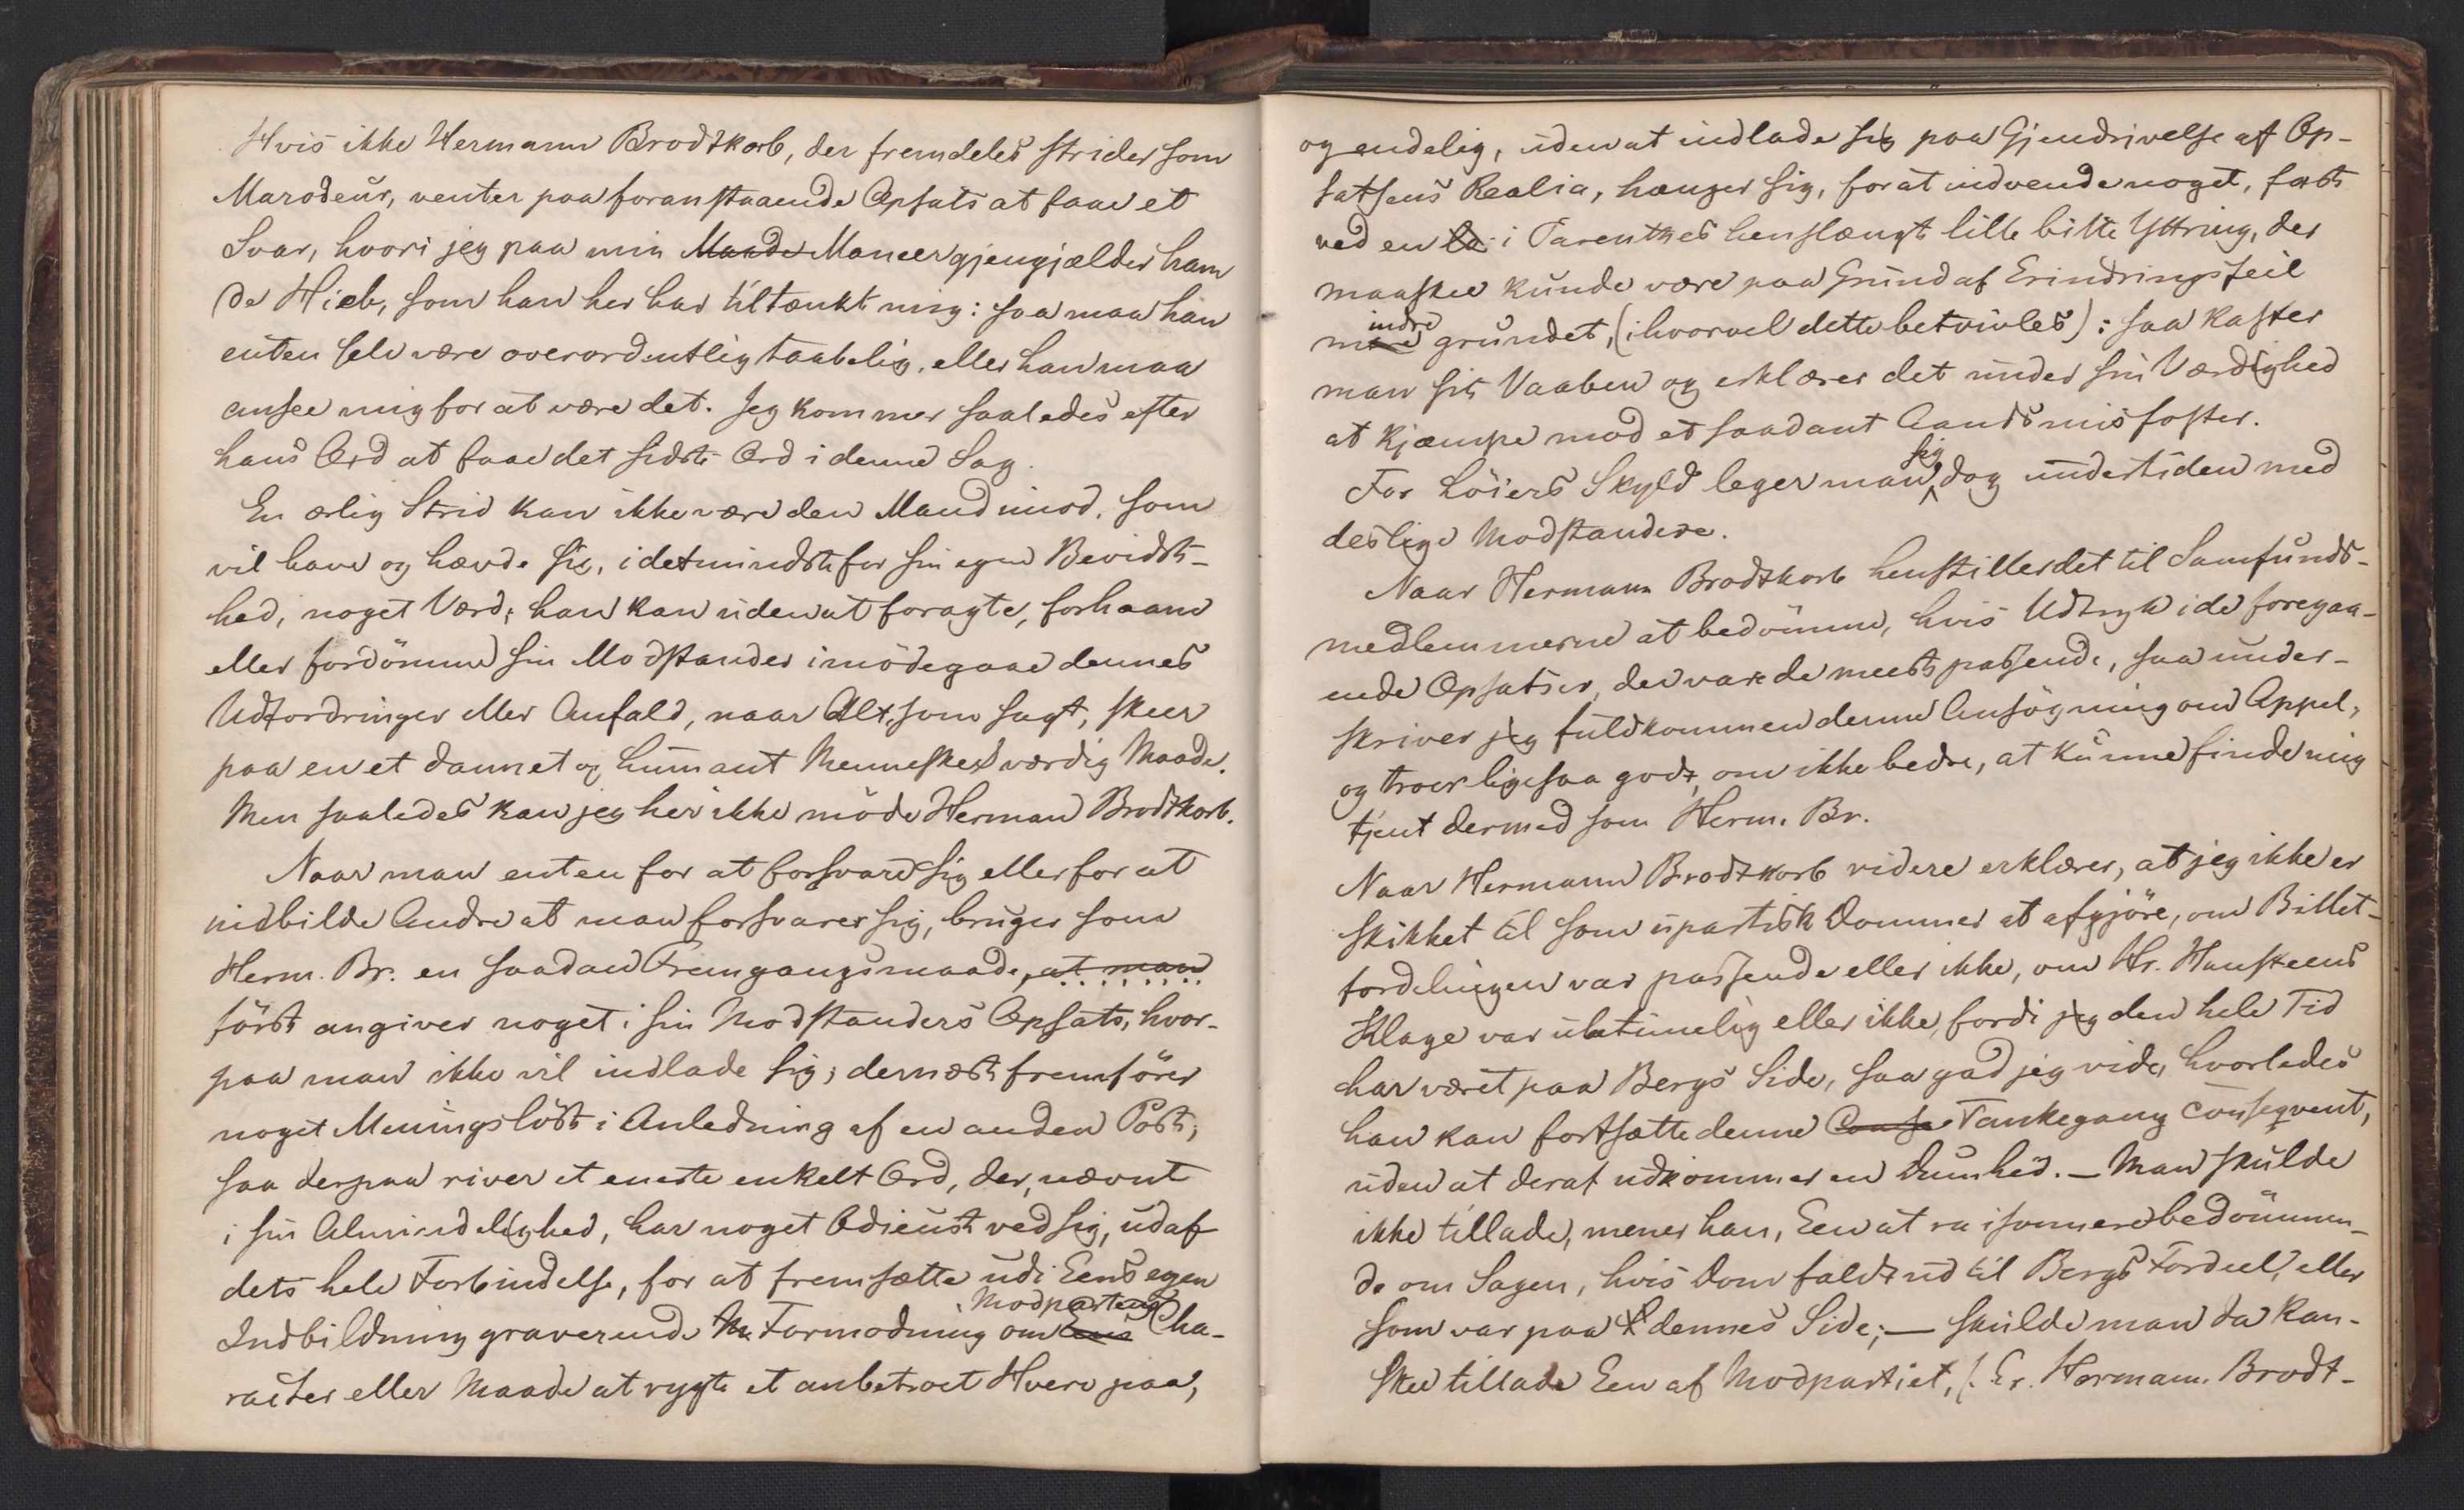 Hvis ikke Hermann Brodtkorb, der fremdeles strider som
Marodeur, venter paa foranstaaende Opsats at faae et
Svar, hvori jeg paa min Maade Maneer gjengjælder ham
de Hieb, som han her har tiltænkt mig: saa maa han
enten selv være overordentlig taabelig, eller han maa
ansee mig for at være det. Jeg kommer saaledes efter
hans Ord at faae det sidste Ord i denne Sag.
En ærlig Strid kan ikke være den Mand imod, som
vil have og hævde sig, i det mindste for sin egen Bevidst-
hed, noget Værd; han kan uden at foragte, forhaane
eller fordömme sin Modstander imödegaae dennes
Udfordringer eller Anfald, naar Alt, som sagt, skeer
paa en et dannet og humant Menneske værdig Maade.
Men saaledes kan jeg her ikke möde Herman Brodtkorb.
Naar man enten for at forsvare sig eller for at
indbilde Andre at man forsvarer sig, bruger som
Herm. Br. en saadan Fremgangsmaade, at man
först angiver noget i sin Modstanders Opsats, hvor-
paa man ikke vil indlade sig; dernæst fremförer
noget Meningslöst i Anledning af en anden Post;
saa derpaa river et eneste enkelt Ord, der, nævnt
i sin Almindelighed, har noget Odieust ved sig, ud af
dets hele Forbindelse, for at fremsætte udi Eens egen
Indbildning graverende M. Formodning om Eens Modpartens Cha-
racter eller Maade at rygte et anbetroet Hverv paa,
og endelig, uden at indlade sig paa Gjendrivelse af Op-
satsens Realia, hænger sig, for at indvende noget, fast
ved en la i Parenthes henslængt lille bitte Yttring, der
maaskee kunde være paa Grund af Erindringsfeil
mindre grundet, (ihvorvel dette betvivles): saa kaster
man sit Vaaben og erklærer det under sin Værdighed
at kjæmpe mod et saadant Aandsmisfoster.
For Löiers Skyld leger man sig dog undertiden med
deslige Modstandere.
Naar Hermann Brodtkorb henstiller det til Samfunds-
medlemmerne at bedömme, hvis Udtryk i de foregaa-
ende Opsatser, der vare de meest passende, saa under-
skriver jeg fuldkommen denne Ansögning om Appel,
og troer ligesaa godt, om ikke bedre, at kunne finde mig
tjent dermed som Herm. Br.
Naar Hermann Brodtkorb videre erklærer, at jeg ikke er
skikket til som upartisk Dommer at afgjöre, om Billet-
fordelingen var passende eller ikke, om Hr. Hansteens
Klage var ubetimelig eller ikke, fordi jeg den hele Tid
har været paa Bergs Side, saa gad jeg vide, hvorledes
han kan fortsætte denne Conse Tankegang conseqvent,
uden at deraf udkommer en Dumhed. – Man skulde
ikke tillade, mener han, Een at raisonnere bedömmen-
de om Sagen, hvis Dom faldt ud til Bergs Fordeel, eller
som var paa dennes Side; – skulde man da kan-
skee tillade Een af Modpartiet, f. Ex. Hermann Brodt-